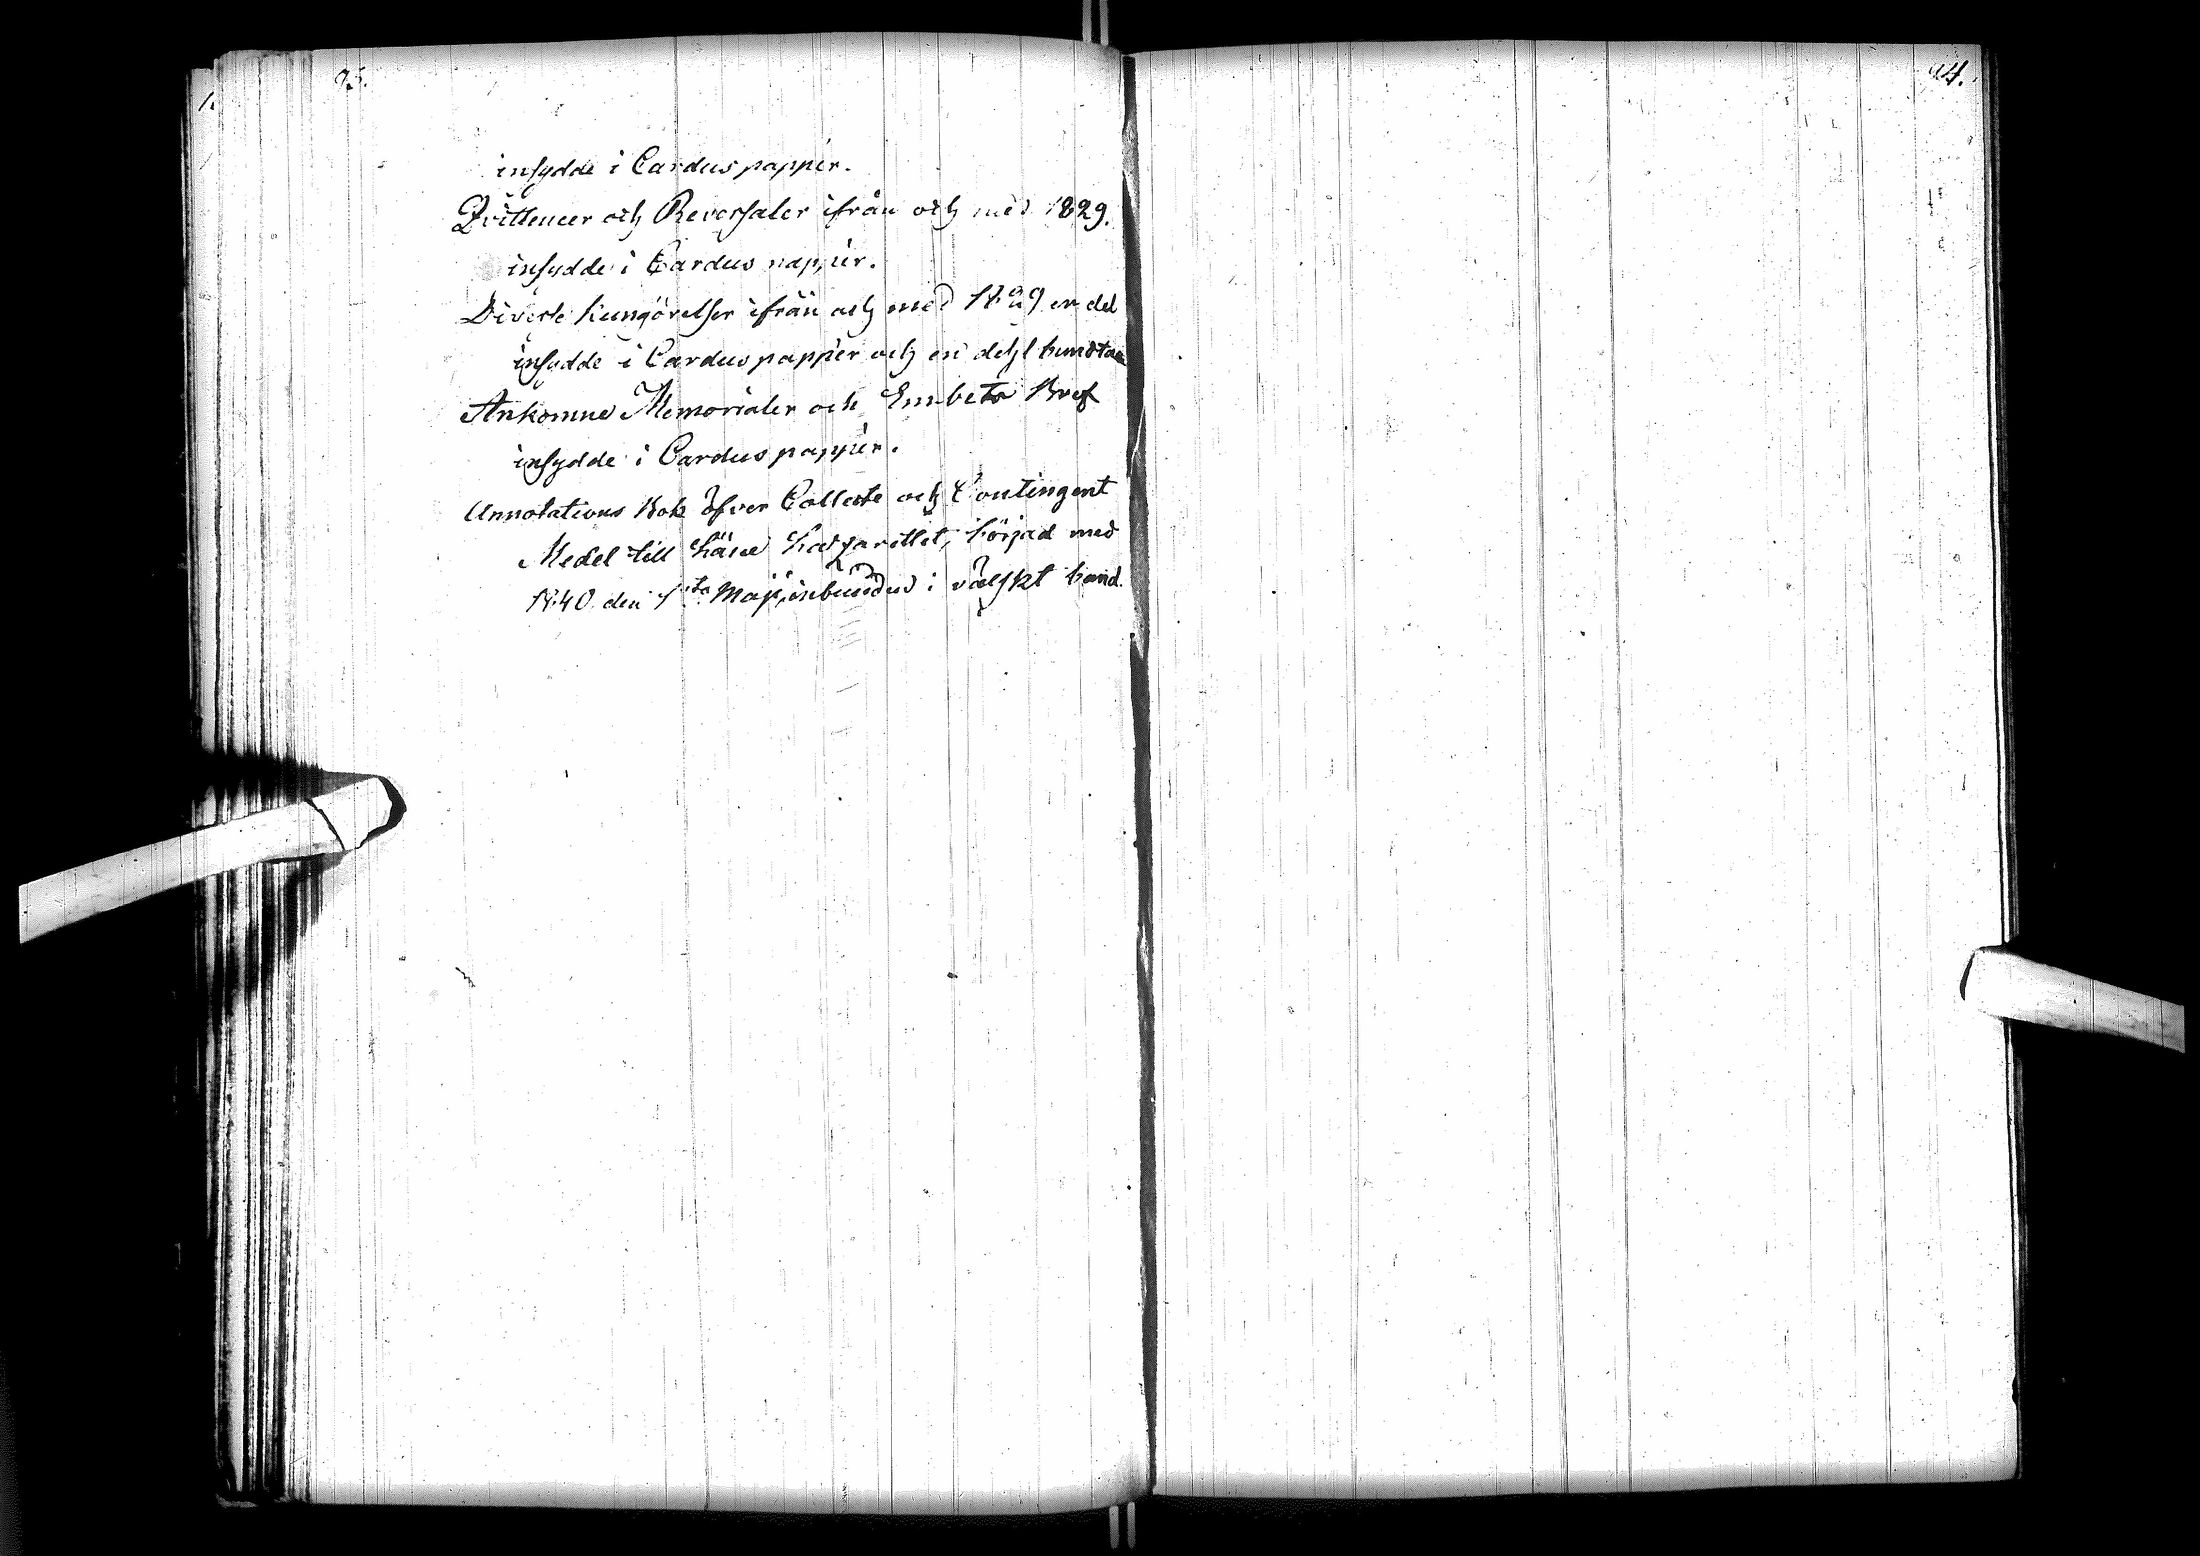 93.
insydde i Cardus papper.
Qvittencer och Reversaler ifrån och med 1829.
insydde i Cardus papper.
Diverse kungörelser ifrån och med 1829 en del
insydde i Carduspapper och en del i bundtar
Ankomne Memorialer och Embets Bref
insydde i Cardus papper.
Annotations Bok öfver Collecte och Contingent
Medel till Läne Lazarettet, börjad med
1840 den 1sta Maji, inbunden i välskt band.
94.